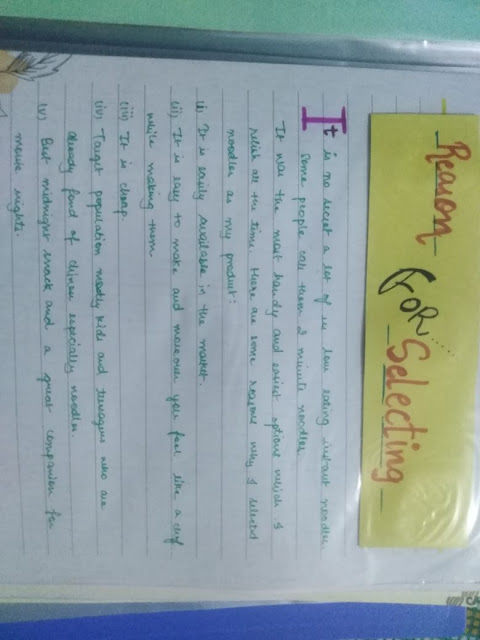 Reason FOR Selecting
It is no secret a lot of us love eating instant noodles
some people call them 2 minute noodles.
It was the most handy and easiest options which I
relish all the time. Here are some reasons why I selected
noodles as my product:
(i) It is easily available in the market.
(ii) It is easy to make and moreover you feel like a chef
while making them
(iii) It is cheap
(iv) Target population mostly kids and teenagers who are
already fond of chinese especially noodles.
(v) Best midnight snack and a great companion for
movie nights.